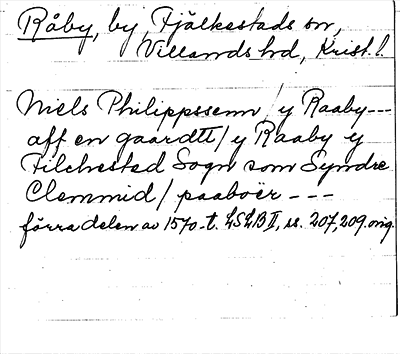 Råby, by, Fjälkestads sn,
Villands hd, Krist. l.
Niels Philippssenn / y Raaby---
aff en gaardtt / y Raaby y
Filchestad Sogn som Syndre
Clemmid / paaboër ---
förra delen av 1570-t. LSLB II, ss. 207, 209. orig.